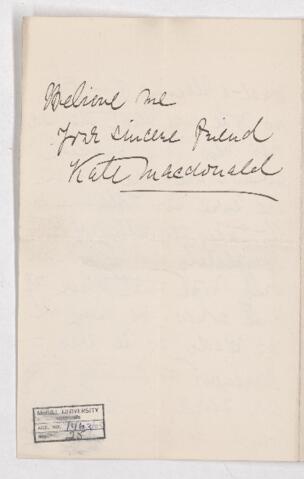 Believe me
your sincere friend
Kate Macdonald
McGILL UNIVERSITY
ACC. NO.
NO. 25